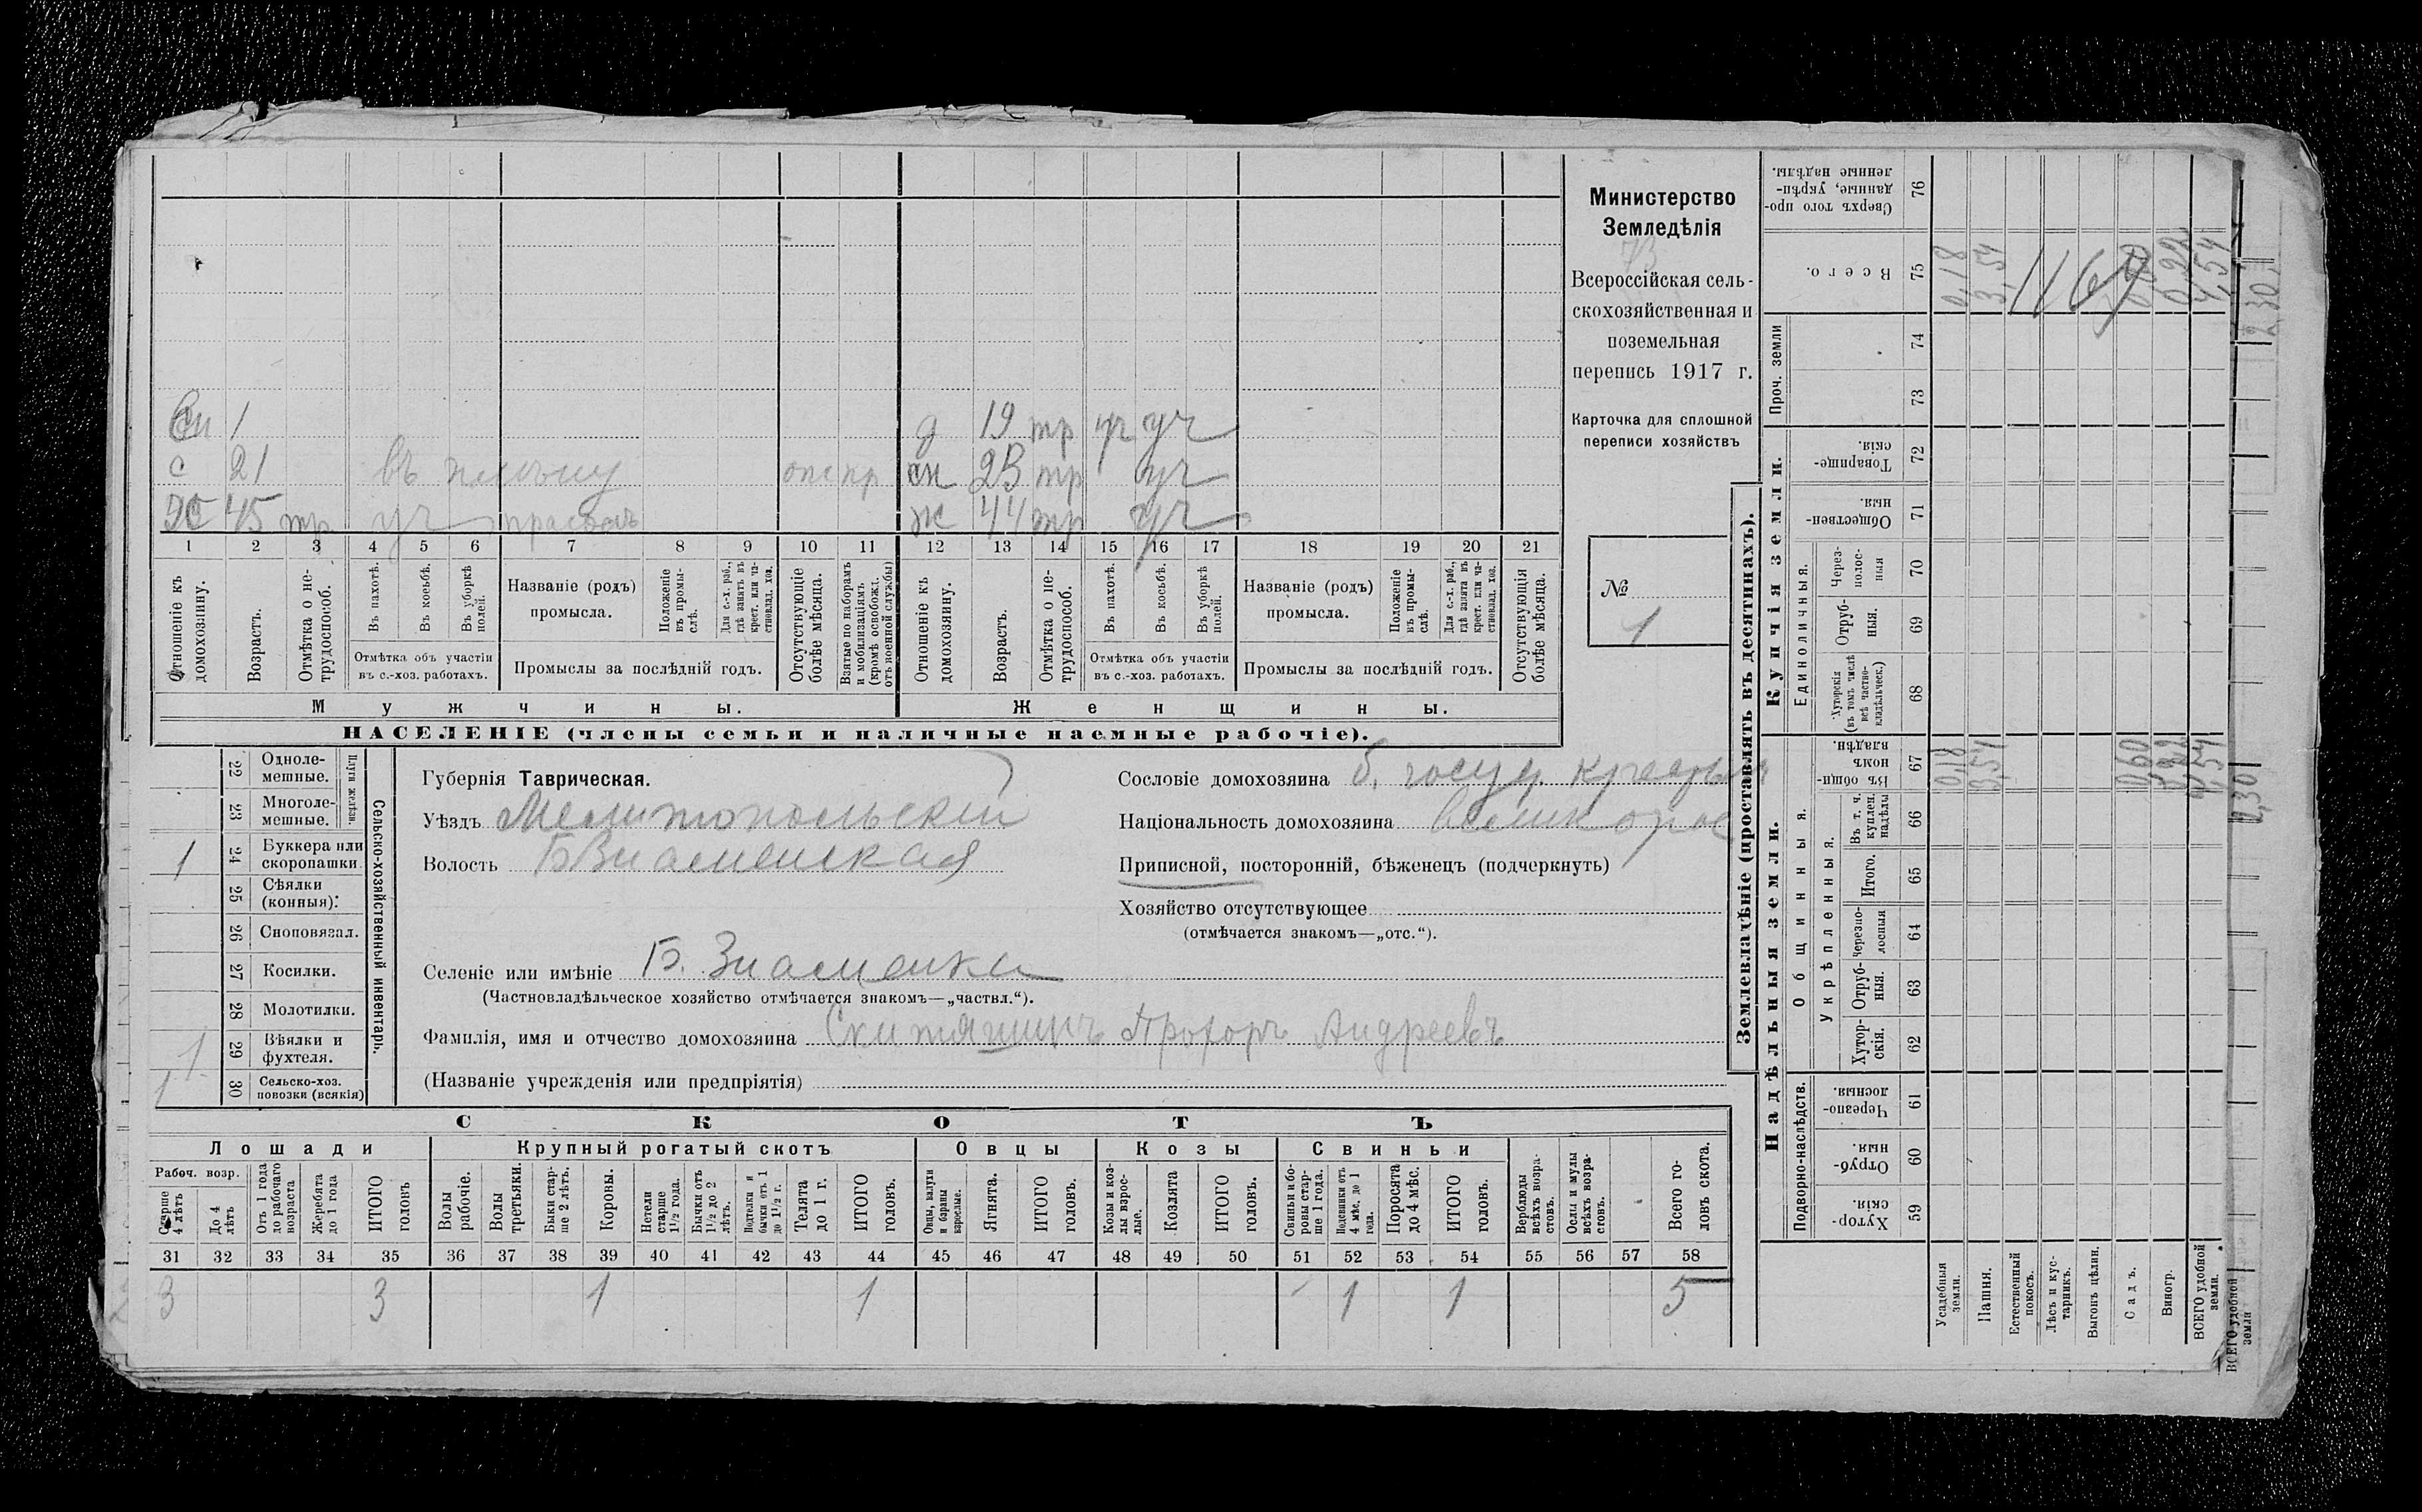 Сн 1
д 19 тр уч уч
с 21 въ плену отс пр сн 23 тр уч
Ж 45 тр уч ж 44 тр уч
1 2 3 4 5 6 7 8 9 10 11 12 13 14 15 16 17 18 19 20 21
Отношеніе къ домохозяину.
Возрастъ.
Отмѣтка о не-
трудоспособ.
Въ пахотѣ.
Въ косьбѣ.
Въ уборкѣ
полей.
Отмѣтка объ участіи
въ с.-хоз. работахъ.
Названіе (родъ)
промысла.
Положеніе
въ промы-
слѣ.
Для с.-х. раб.,
гдѣ занятъ въ
крест. или ча-
стновлад. хоз.
Промыслы за послѣдній годъ.
Отсутствующіе
болѣе мѣсяца.
Взятые по наборамъ
и мобилизаціямъ
(кромѣ освобожд.
отъ военной службы)
Отношеніе къ
домохозяину.
Возрастъ.
Отмѣтка о не-
трудоспособ.
Въ пахотѣ.
Въ косьбѣ.
Въ уборкѣ
полей.
Отмѣтка объ участіи
въ с.-хоз. работахъ.
Названіе (родъ)
промысла.
Положеніе
въ промы-
слѣ.
Для с.-х. раб.,
гдѣ занята въ
крест. или ча-
стновлад. хоз.
Промыслы за послѣдній годъ.
Отсутствующія
болѣе мѣсяца.
Мужчины.
Женщины.
НАСЕЛЕНІЕ (члены семьи и наличные наемные рабочіе).
Министерство
Земледѣлія
73
Всероссійская сель-
скохозяйственная и
поземельная
перепись 1917 г.
Карточка для сплошной
переписи хозяйствъ
№
1
22 Одноле-
мешные.
23 Многоле-
мешные.
Плуги желѣзн.
1 24 Буккера или
скоропашки.
25 Сѣялки
(конныя):
26 Сноповязал.
27 Косилки.
28 Молотилки.
1 29 Вѣялки и
фухтеля.
1 30 Сельско-хоз.
повозки (всякія)
Сельско-хозяйственный инвентарь.
Губернія Таврическая.
Уѣздъ Мелитопольскій
Волость Б Знаменская
Селеніе или имѣніе Б. Знаменка
(Частновладѣльческое хозяйство отмѣчается знакомъ—„частвл.“).
Фамилія, имя и отчество домохозяина Прохоръ Андреевъ
(Названіе учрежденія или предпріятія)
Сословіе домохозяина б. госуд. крестьян
Національность домохозяина великорос
Приписной, посторонній, бѣженецъ (подчеркнуть)
Хозяйство отсутствующее
(отмѣчается знакомъ—„отс.“).
СКОТЪ
Лошади
Рабоч. возр.
Старше
4 лѣтъ
До 4
лѣтъ
Отъ 1 года
до рабочаго
возраста
Жеребята
до 1 года
ИТОГО
головъ
Крупный рогатый скотъ
Волы
рабочіе.
Волы
третьяки.
Быки стар-
ше 2 лѣтъ.
Коровы.
Нетели
старше
1½ года.
Бычки отъ
1½ до 2
лѣтъ.
Подтелки и
бычки отъ 1
до 1½ г.
Телята
до 1 г.
ИТОГО
головъ.
Овцы
Овцы, валухи
и бараны
взрослые.
Ягнята.
ИТОГО
головъ.
Козы
Козы и коз-
лы взрос-
лые.
Козлята
ИТОГО
головъ.
Свиньи
Свиньи и бо-
ровы стар-
ше 1 года.
Подсвинки отъ
4 мѣс. до 1
года.
Поросята
до 4 мѣс.
ИТОГО
головъ.
Верблюды
всѣхъ возра-
стовъ.
Ослы и мулы
всѣхъ возра-
стовъ.
Всего го-
ловъ скота.
31 32 33 34 35 36 37 38 39 40 41 42 43 44 45 46 47 48 49 50 51 52 53 54 55 56 57 58
3 3 1 1 1 1 5
Землевладѣніе (проставлять въ десятинахъ).
Купчія земли.
Надѣльныя земли.
Сверхъ того про-
данные, укрѣп-
ленные надѣлы.
76
Всего.
75 0,18 3,54 1164 0,22 4,54 2,30
Проч. земли
74
73
Товарище-
скія.
72
Обществен-
ныя.
71
Единоличныя.
Через-
полос-
ныя
70
Отруб-
ныя.
69
Хуторскія
(въ томъ числѣ
всѣ частно-
владѣльческ.)
68
Общинныя.
Въ общи-
номъ
владѣн.
67 0,18 3,54 0,60 3,82 4,54 2,30
Укрѣпленныя.
Въ т. ч.
куплен.
надѣлы
66
Итого.
65
Черезпо-
лосныя
64
Отруб-
ныя.
63
Хутор-
скія.
62
Подворно-наслѣдств.
Черезпо-
лосныя.
61
Отруб-
ныя.
60
Хутор-
скія.
59
Усадебныя
земли.
Пашня.
Естественный
покосъ.
Лѣсъ и кус-
тарникъ.
Выгонъ цѣлин.
Садъ.
Виногр.
ВСЕГО удобной
земли.
ВСЕГО удобной
земли